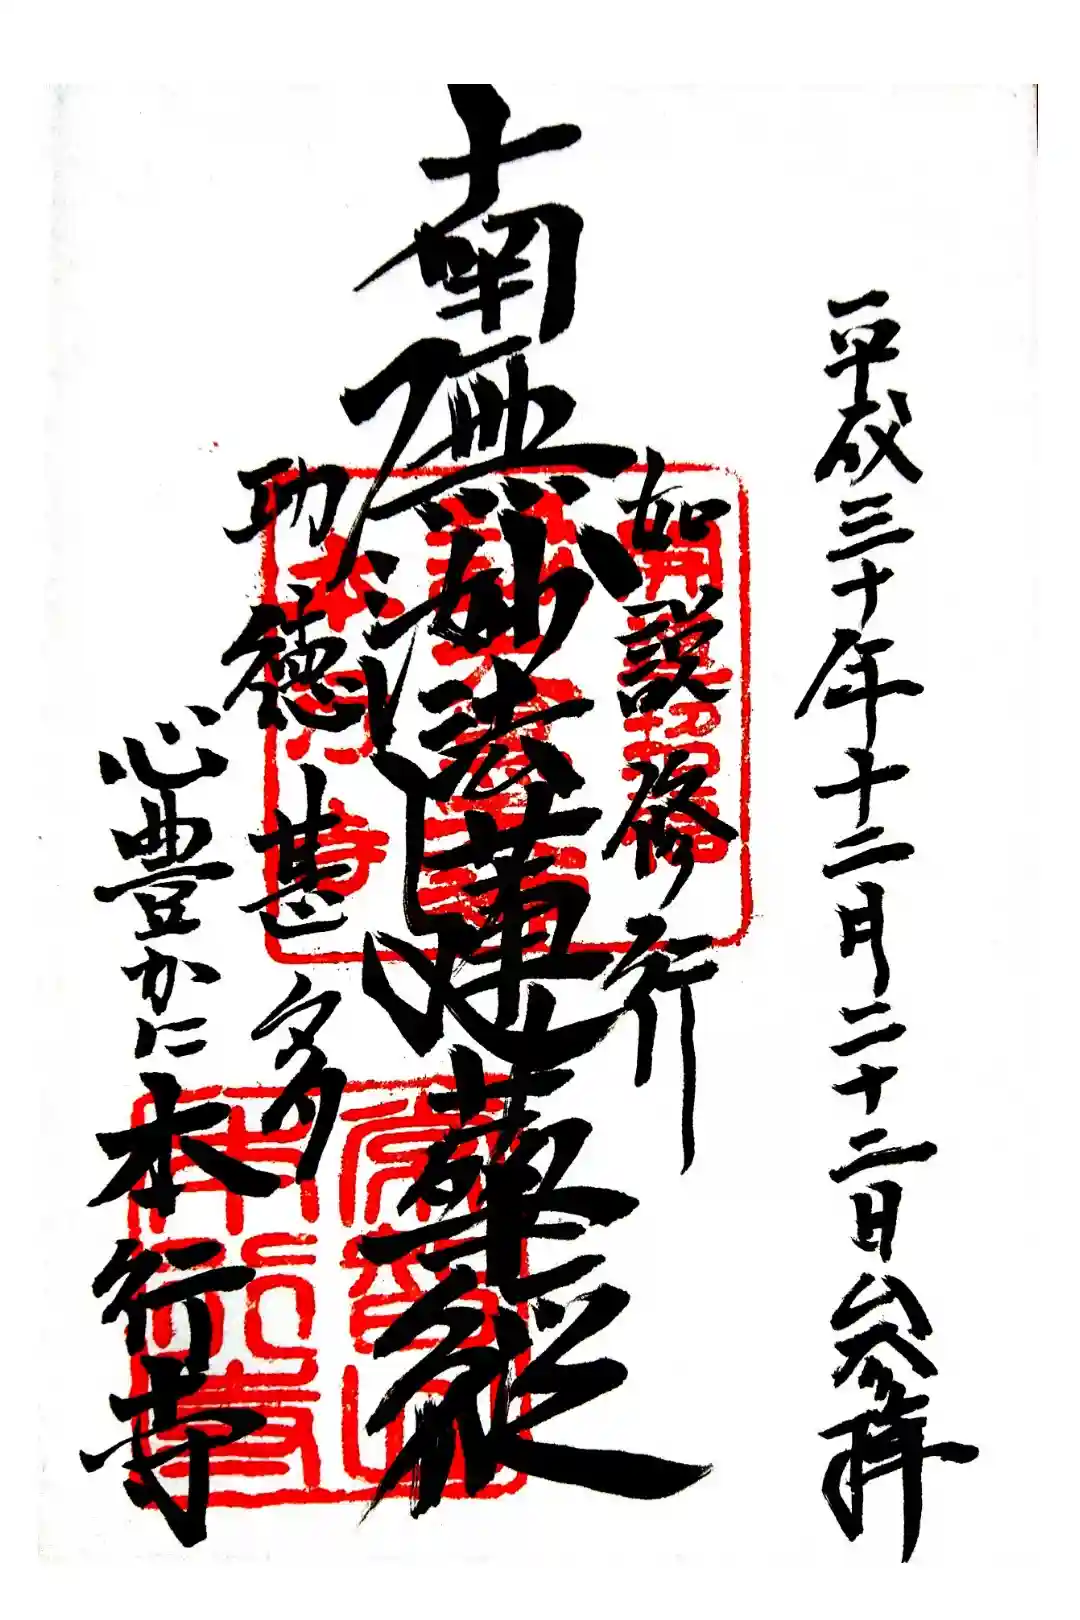 平成三十年十二月二十二日参拝
如説修行
南無妙法蓮華経
功徳甚多
心豊かに本行寺